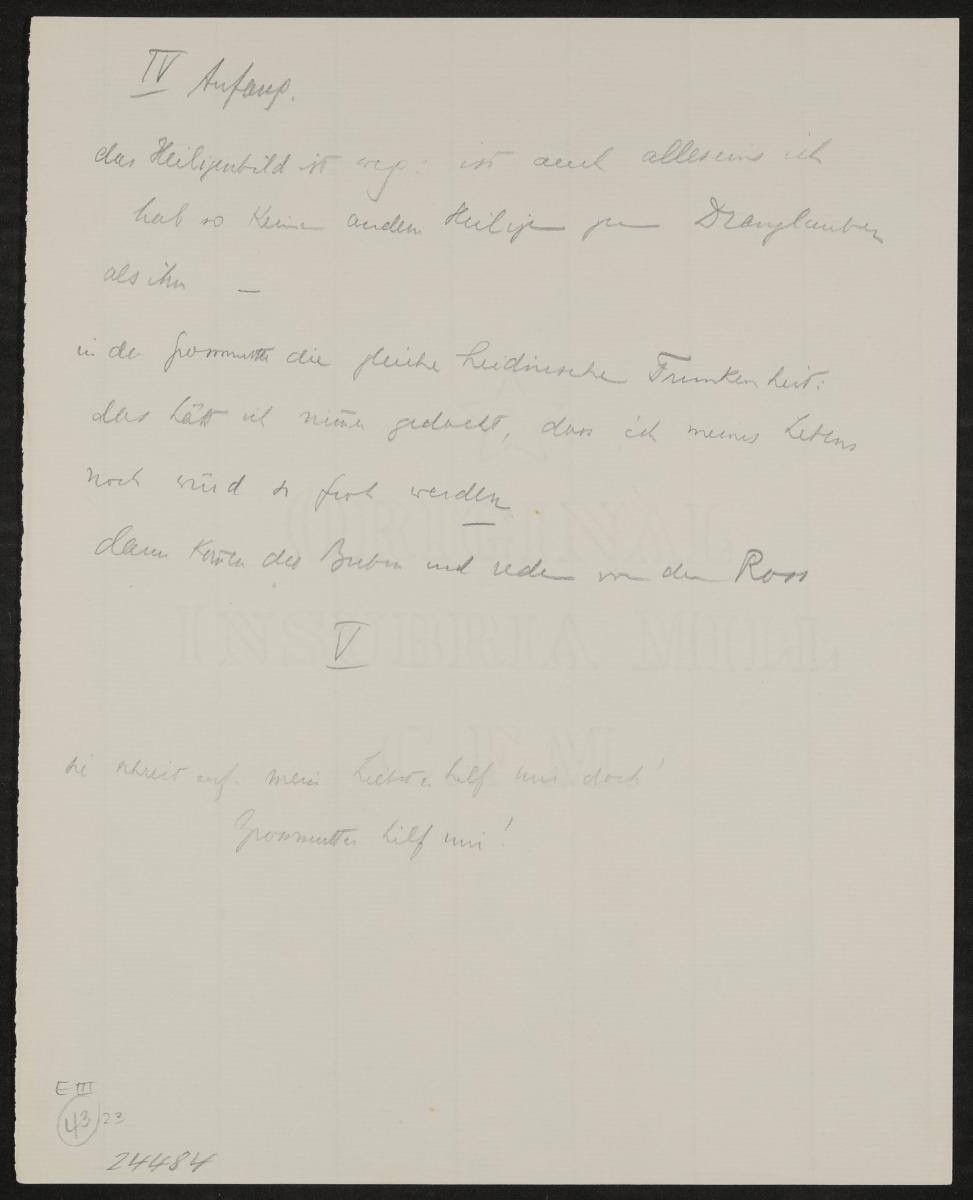 IV Anfang.
das Heiligenbild ist weg: ist auch alleseins ich
hab so keinen andern Heiligen zum Dranglauben
als ihn —
in der Grossmutter die gleiche heidnische Trunkenheit:
das hätt ich nimmer gedacht, dass ich meines Lebens
noch würd so froh werden
dann kommen die Buben und reden von den Ross
V
sie schreit auf: mein Liebster hilf mir doch!
Grossmutter hilf mir!
ORIGINAL
INSUBRIA MILL
C F M
E III
43 23
24484